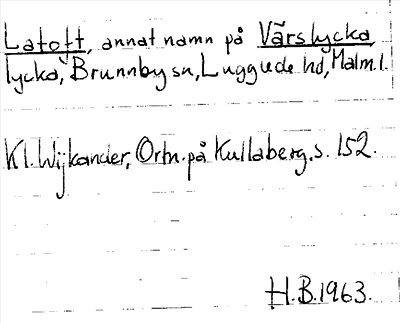 Latoft, annat namn på Vårslycka,
lycka, Brunnby sn, Luggude hd, Malm.l.
Kl. Wijkander, Ortn. på Kullaberg, s. 152.
H.B. 1963.